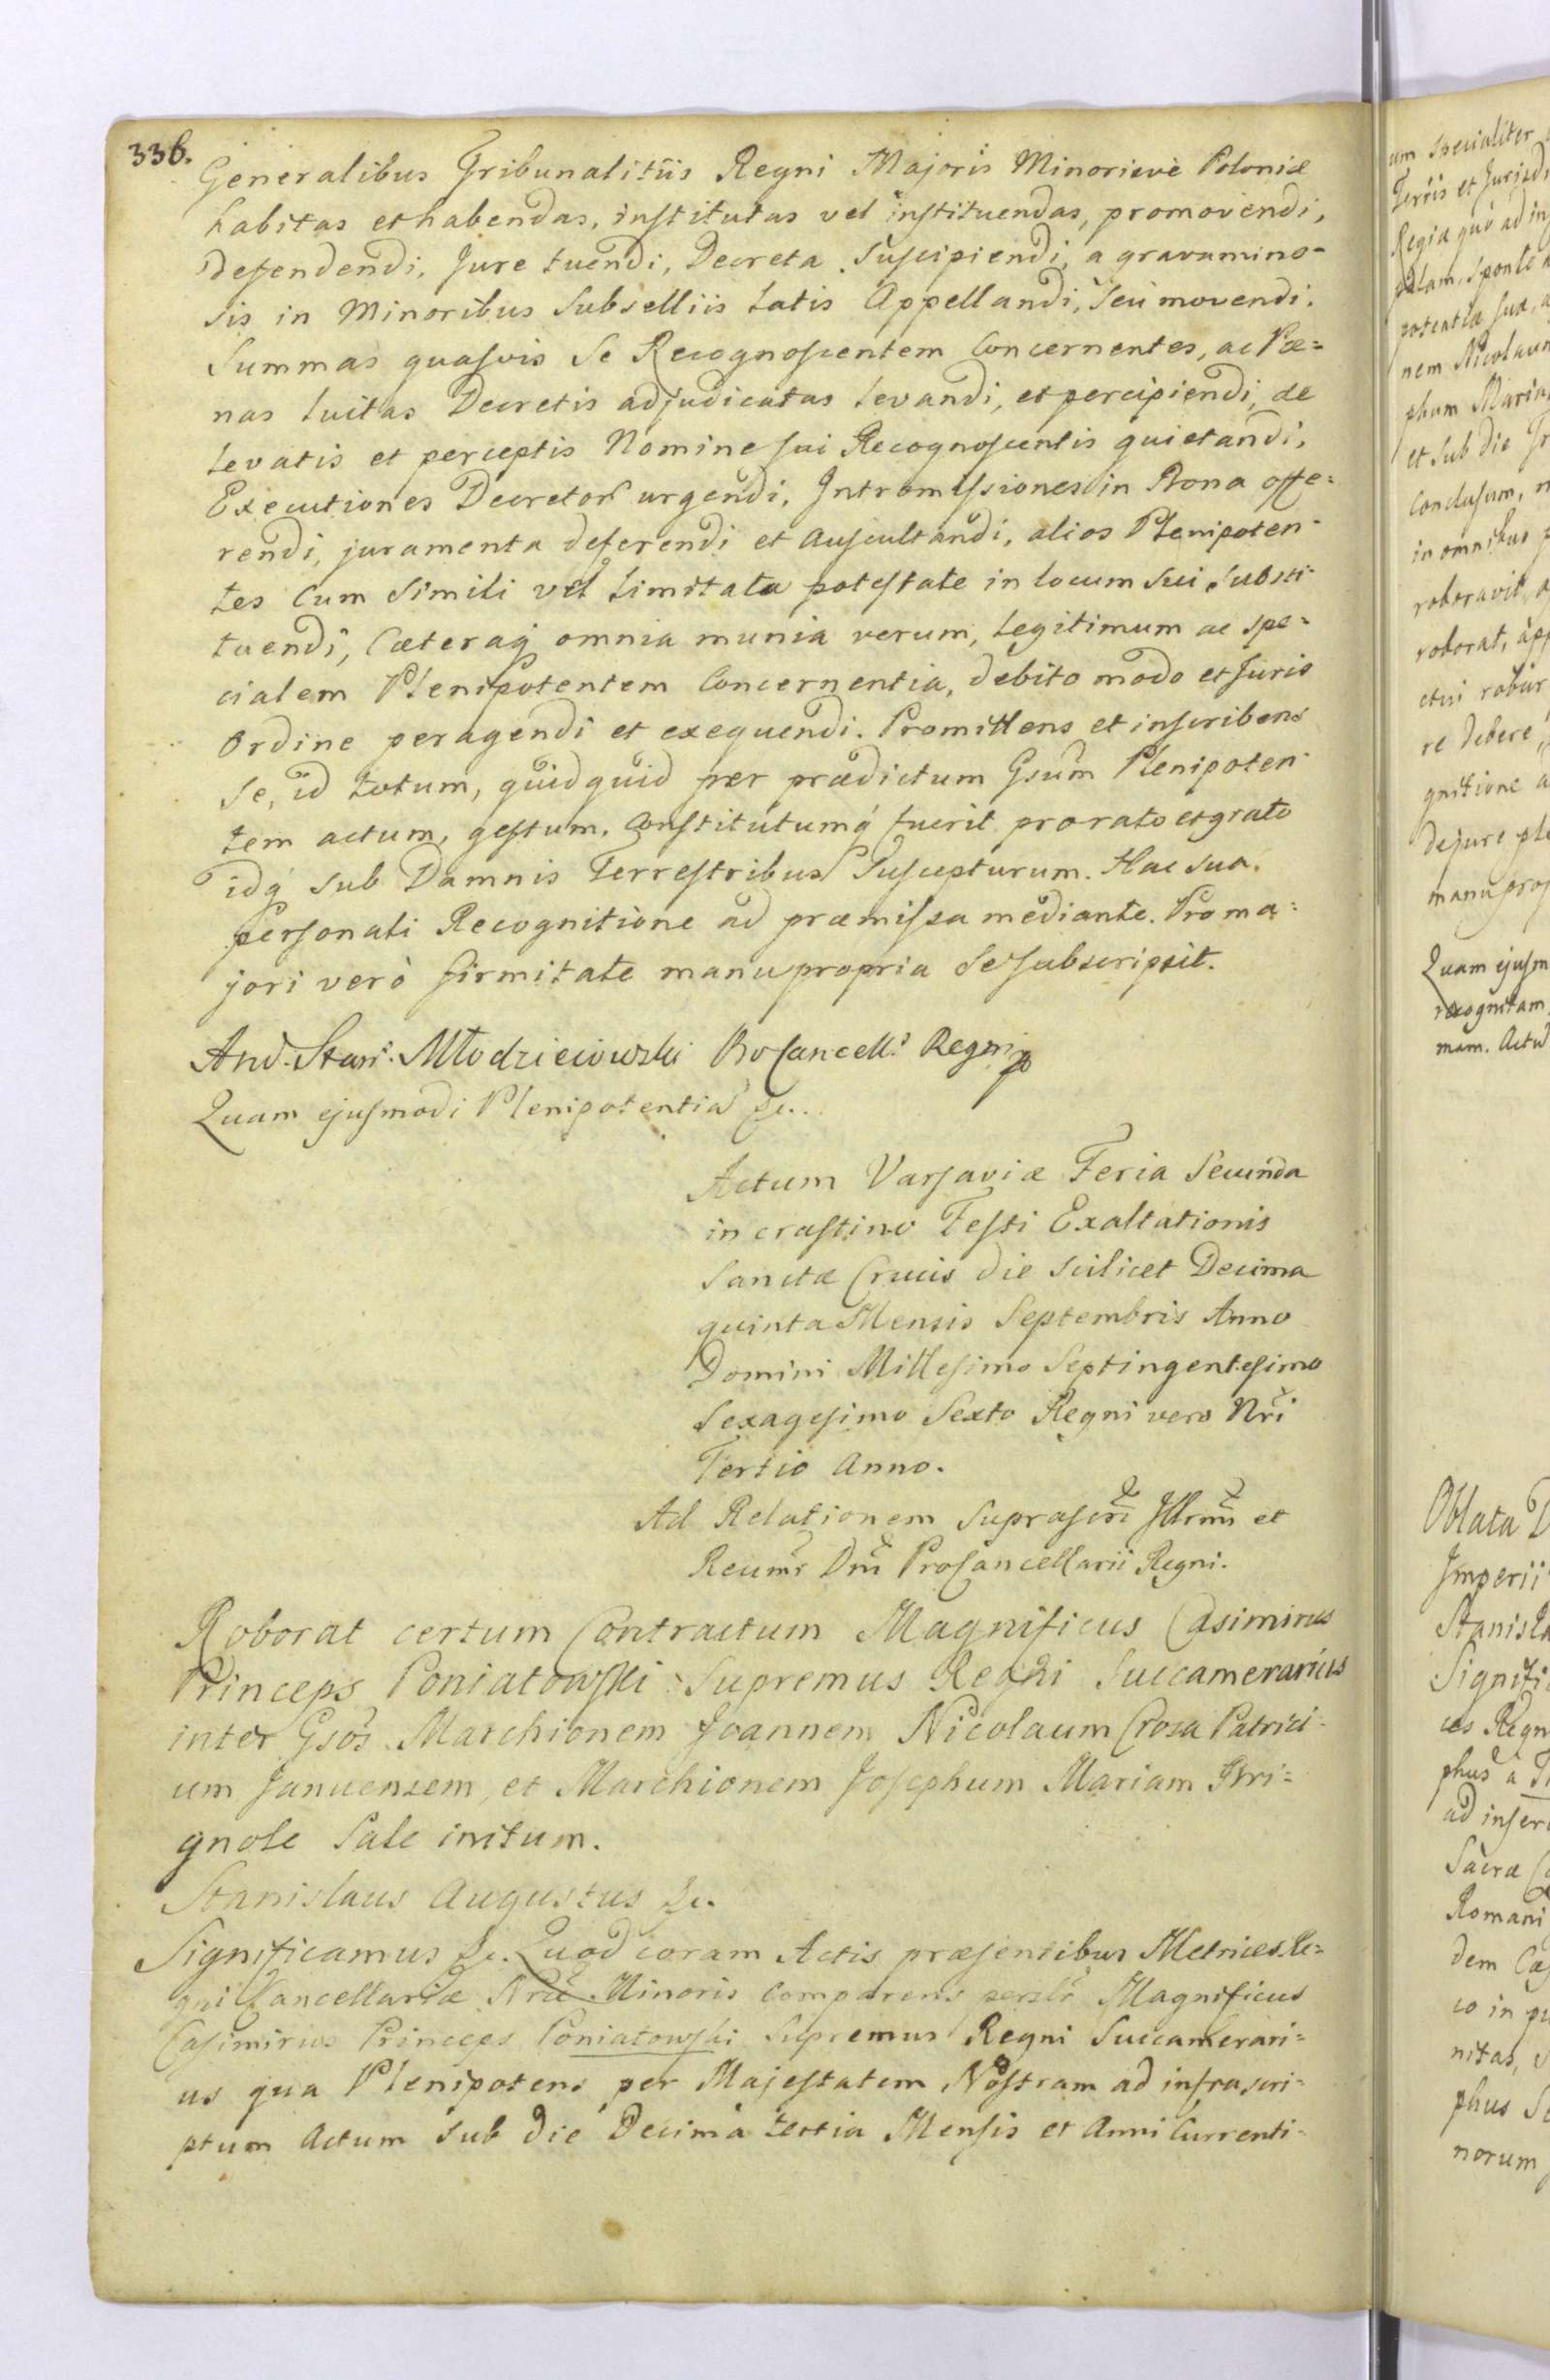 336.
Generalibus Tribunalitiis Regni Majoris Minorisvè Poloniæ
habitas et habendas, institutas vel instituendas, promovendi,
defendendi, Jure tuendi, Decreta Suscipiendi, a gravamino-
sis in Minoribus Subselliis latis Appellandi, Seù movendi.
Summas quasvis Se Recognoscentem Concernentes, ac Pæ=
nas luitas Decretis adjudicatas levandi, et percipiendi, de
levatis et perceptis Nomine sui Recognoscentis quietandi,
Executiones Decretor urgendi, Intromissiones in Bona offe=
rendi, juramenta deferendi et auscultandi, alios Plenipoten-
tes Cum Simili vel limitata potestate in locum Sui Substi-
tuendi, Cæteraq omnia munia verum, legitimum ac spe=
cialem Plenipotentem Concernentia, debito modo et Juris
Ordine peragendi et exequendi. Promittens et inscribens
Se, id totum, quidquid per prædictum Gsum Plenipoten-
tem actum, gestum, Constitutumq fuerit pro rato et grato
idq sub Damnis Terrestribus Suscepturum. Hac sua
personali Recognitione ad præmissa mediante. Pro ma=
jori verò firmitate manu propria Se subscripsit.
And. Stan. Młodzieiowski ProCancell. Regni
Quam ejusmodi Plenipotentia &c..
Actum Varsaviæ Feria Secunda
in crastino Festi Exaltationis
Sanctæ Crucis die scilicet Decima
quinta Mensis Septembris Anno
Domini Millesimo Septingentesimo
Sexagesimo Sexto Regni vero Nri
Tertio Anno.
Ad Relationem suprascri Illrmi et
Reumi Dni ProCancellarii Regni.
Roborat certum Contractum Magnificus Casimirus
Princeps Poniatowski Supremus Regni Succamerarius
inter Gsos Marchionem Joannem Nicolaum Crosa Patrici-
um Januensem, et Marchionem Josephum Mariam Bri=
gnole Sale initum.
Stanislaus Augustus &c.
Significamus &c. Quod coram Actis præsentibus Metrices Re=
gni Cancellariæ Nræ Minoris Comparens Magnificus
Casimirus Princeps Poniatowski Supremus Regni Succamerari=
us qua Plenipotens per Majestatem Nostram ad infra scri=
ptum Actum sub die Decima tertia Mensis et Anni Currenti-
um specialiter
Terris et
Regia quò ad
palam, sponte
potentiæ suæ,
nem Nicolaum
phum
et sub die
Conclusum,
in omnibus
roboravit,
roborat,
robur
re debere,
gnitione
de jure
manu
Quam
recognitam
mam.
Oblata
Imperii
ad
Sacræ
Romani
dem
co in
nitas,
phus
norum